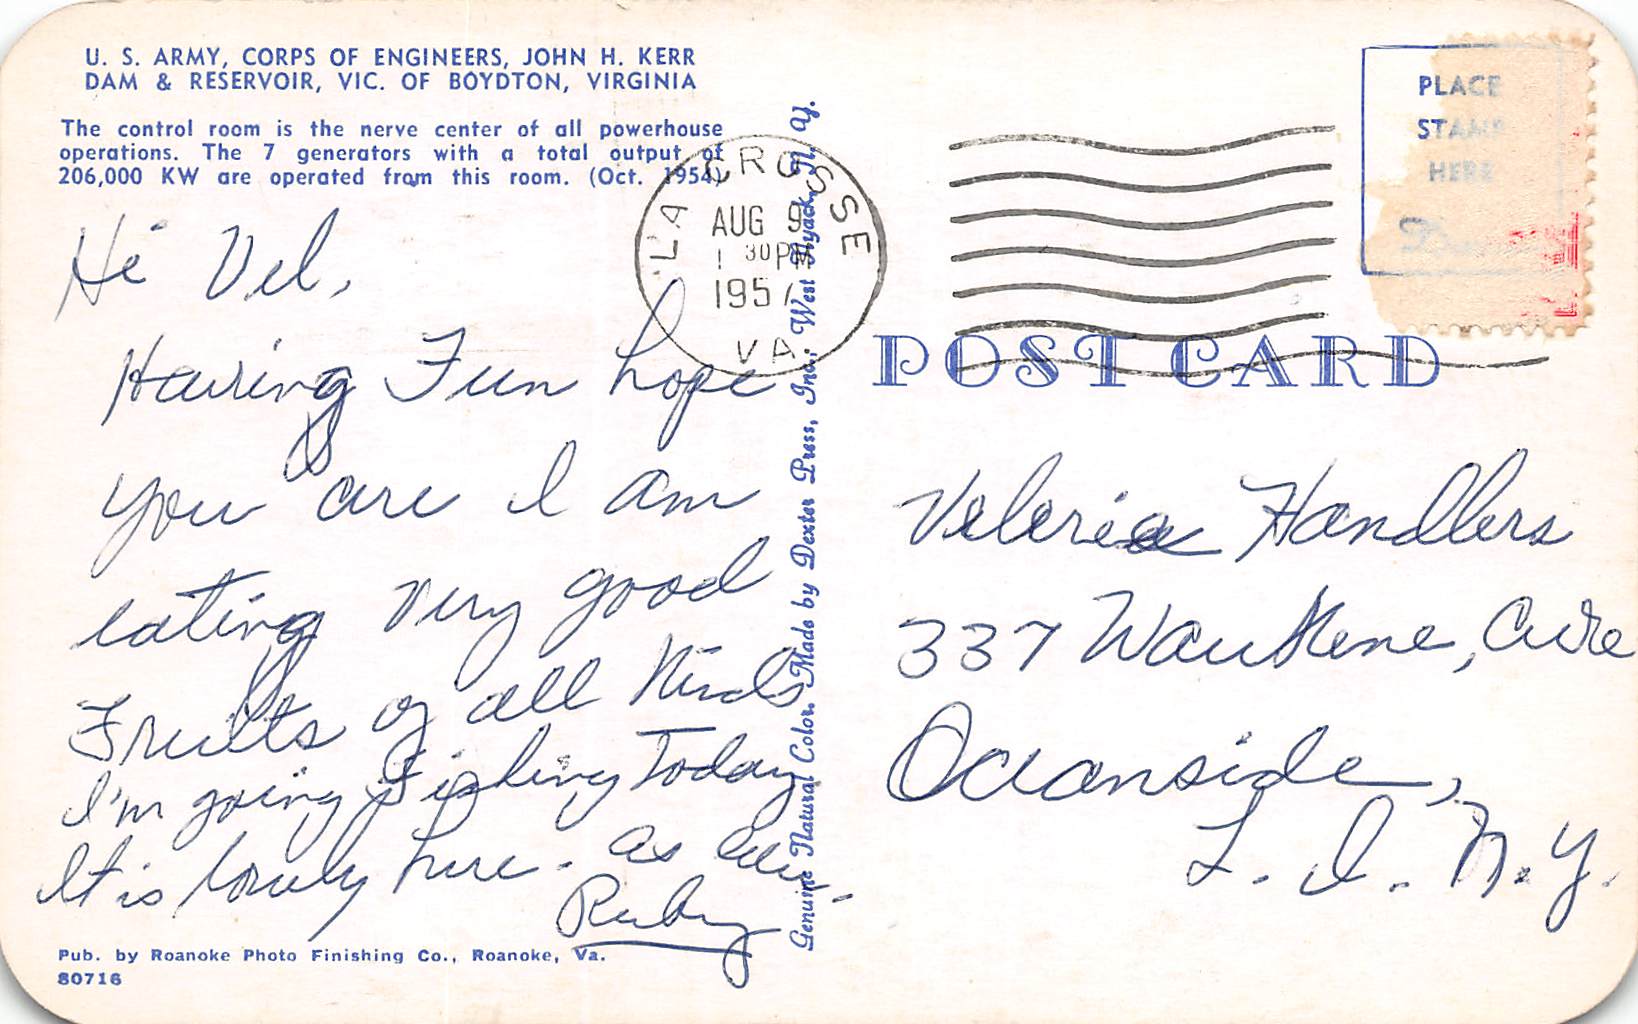 U. S. ARMY, CORPS OF ENGINEERS, JOHN H. KERR
DAM & RESERVOIR, VIC. OF BOYDTON, VIRGINIA
The control room is the nerve center of all powerhouse
operations. The 7 generators with a total output of
206,000 KW are operated from this room. (Oct. 1954)
Hi Vel,
Having Fun hope
you are I am
eating very good
Fruits of all Kinds
I'm going Fishing Today
It is lovely here - as ever.
Ruby
Pub. by Roanoke Photo Finishing Co., Roanoke, Va.
80716
Genuine Natural Color. Made by Dexter Press, Inc., West Nyack, N. Y.
LA CROSSE
AUG 9
1 30 PM
195
VA.
PLACE
STAMP
HERE
POST CARD
Veleria Handlers
337 Waukene, Ave
Oceanside,
L. I. N. Y.